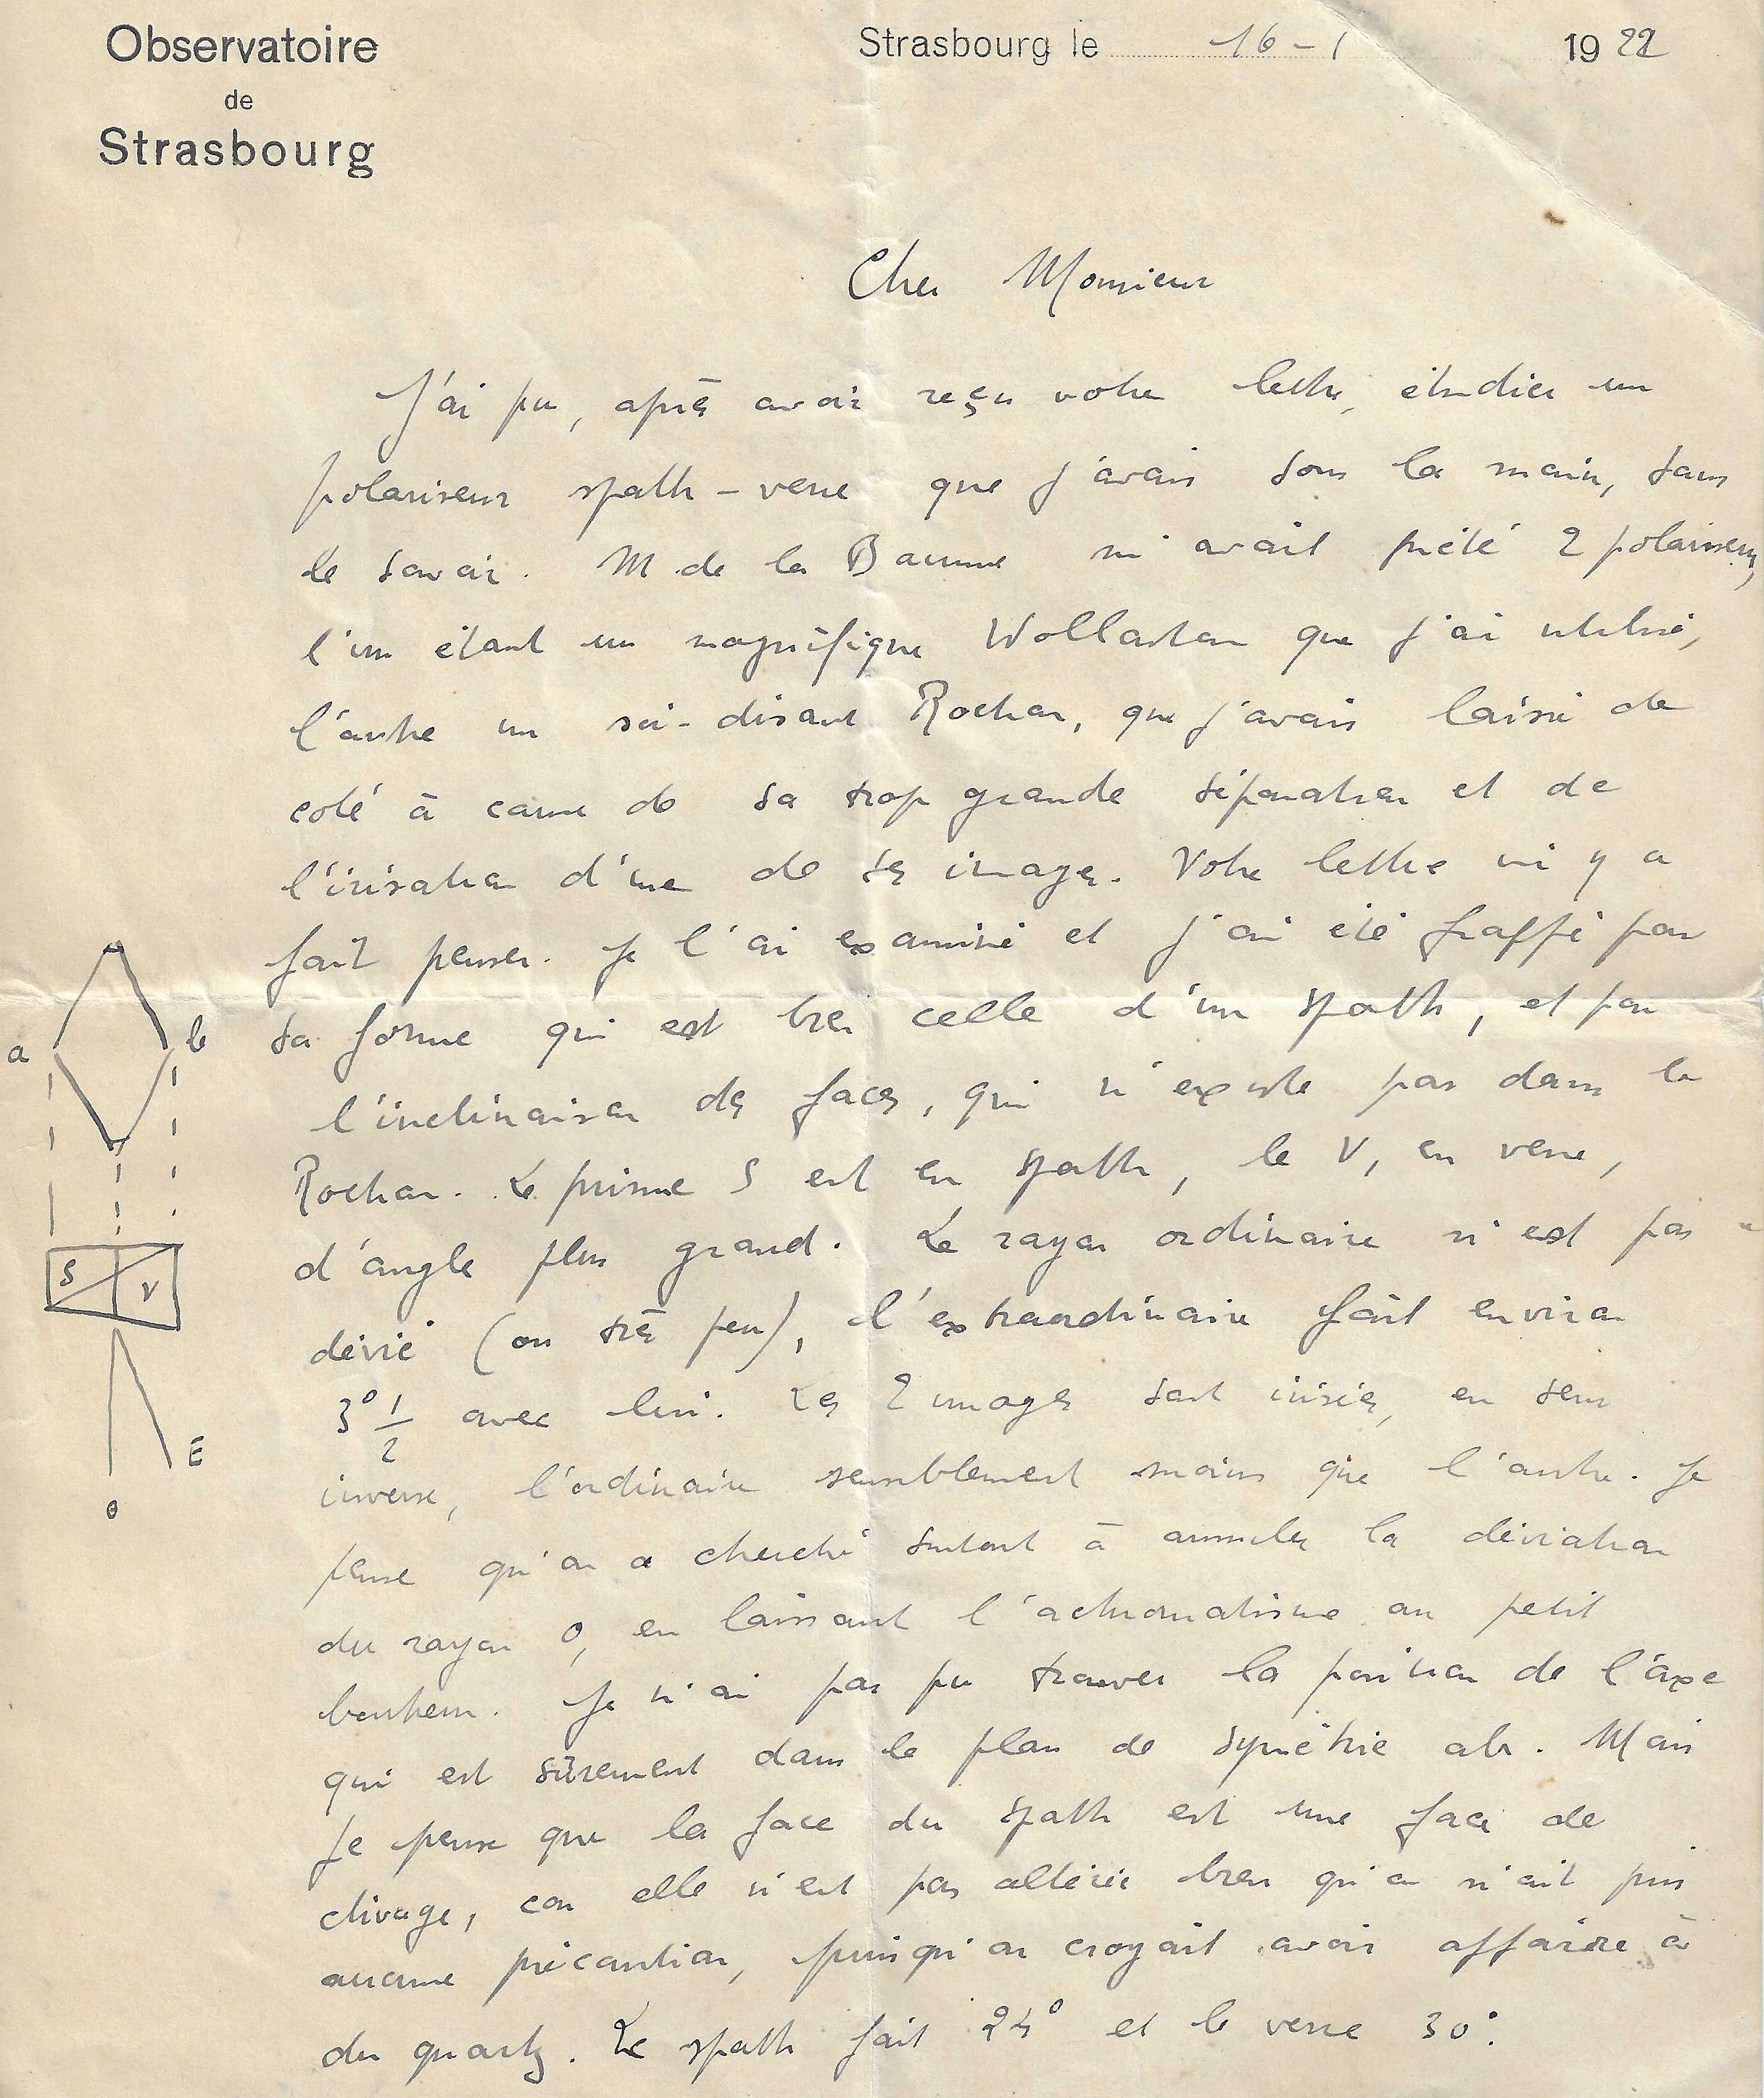 Observatoire
de
Strasbourg
Strasbourg le 16-1 1922
Cher Monsieur
J'ai pu, après avoir reçu votre lettre, étudier un
polariseur spath-verre que j'avais sous la main, sans
le savoir. M de la Baume m'avait prêté 2 polariseurs,
l'un étant un magnifique Wollaston que j'ai utilisé,
l'autre un soi-disant Rochon, que j'avais laissé de
coté à cause de sa trop grande séparation et de
l'irisation d'une de ses images. Votre lettre m'y a
fait penser. Je l'ai examiné et j'ai été frappé par
sa forme qui est bien celle d'un spath, et par
l'inclinaison des faces, qui n'existe pas dans le
Rochon. Le prisme S est en spath, le V, en verre,
d'angle plus grand. Le rayon ordinaire n'est pas
dévié (ou très peu), l'extraordinaire fait environ
3° 1/2 avec lui. Les 2 images sont irisées, en sens
inverse, l'ordinaire sensiblement moins que l'autre. Je
pense qu'on a cherché surtout à annuler la déviation
du rayon O, en laissant l'achromatisme au petit
bonheur. Je n'ai pas pu trouver la position de l'axe
qui est sûrement dans le plan de symétrie ab. Mais
je pense que la face du spath est une face de
clivage, car elle n'est pas altérée bien qu'on n'ait pris
aucune précaution, puisqu'on croyait avoir affaire à
du quartz. Le spath fait 24° et le verre 30°.
a b
S V
E
O